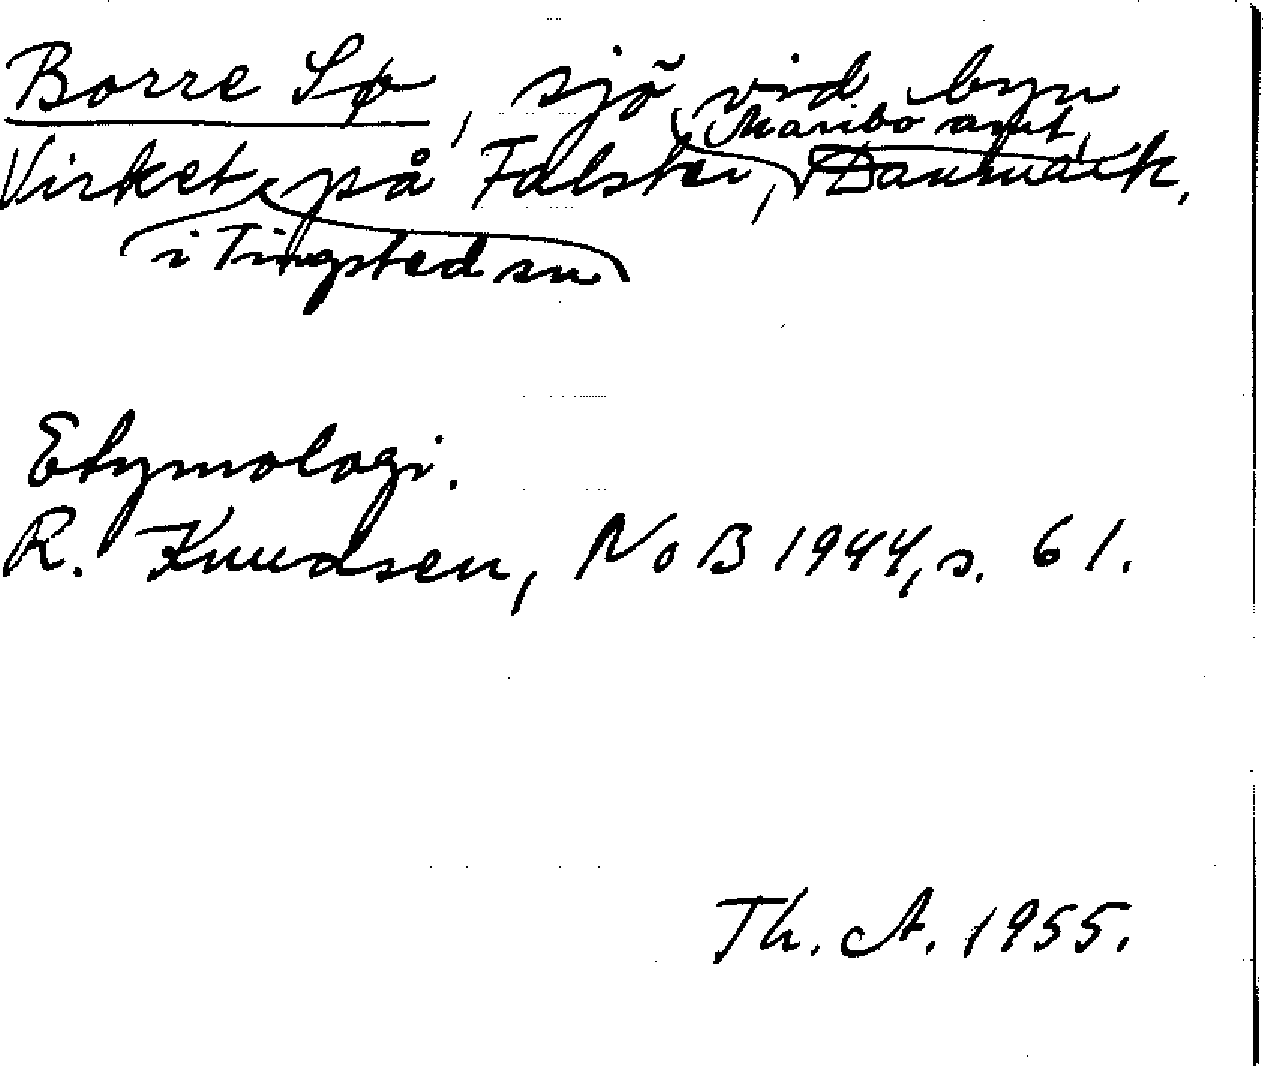 Borre Sø, sjö vid byn
Maribo amt,
Virket på Falster, Danmark.
i Tingsted sn
Etymologi.
R. Knudsen, NoB 1944, s. 61.
Th. A. 1955.